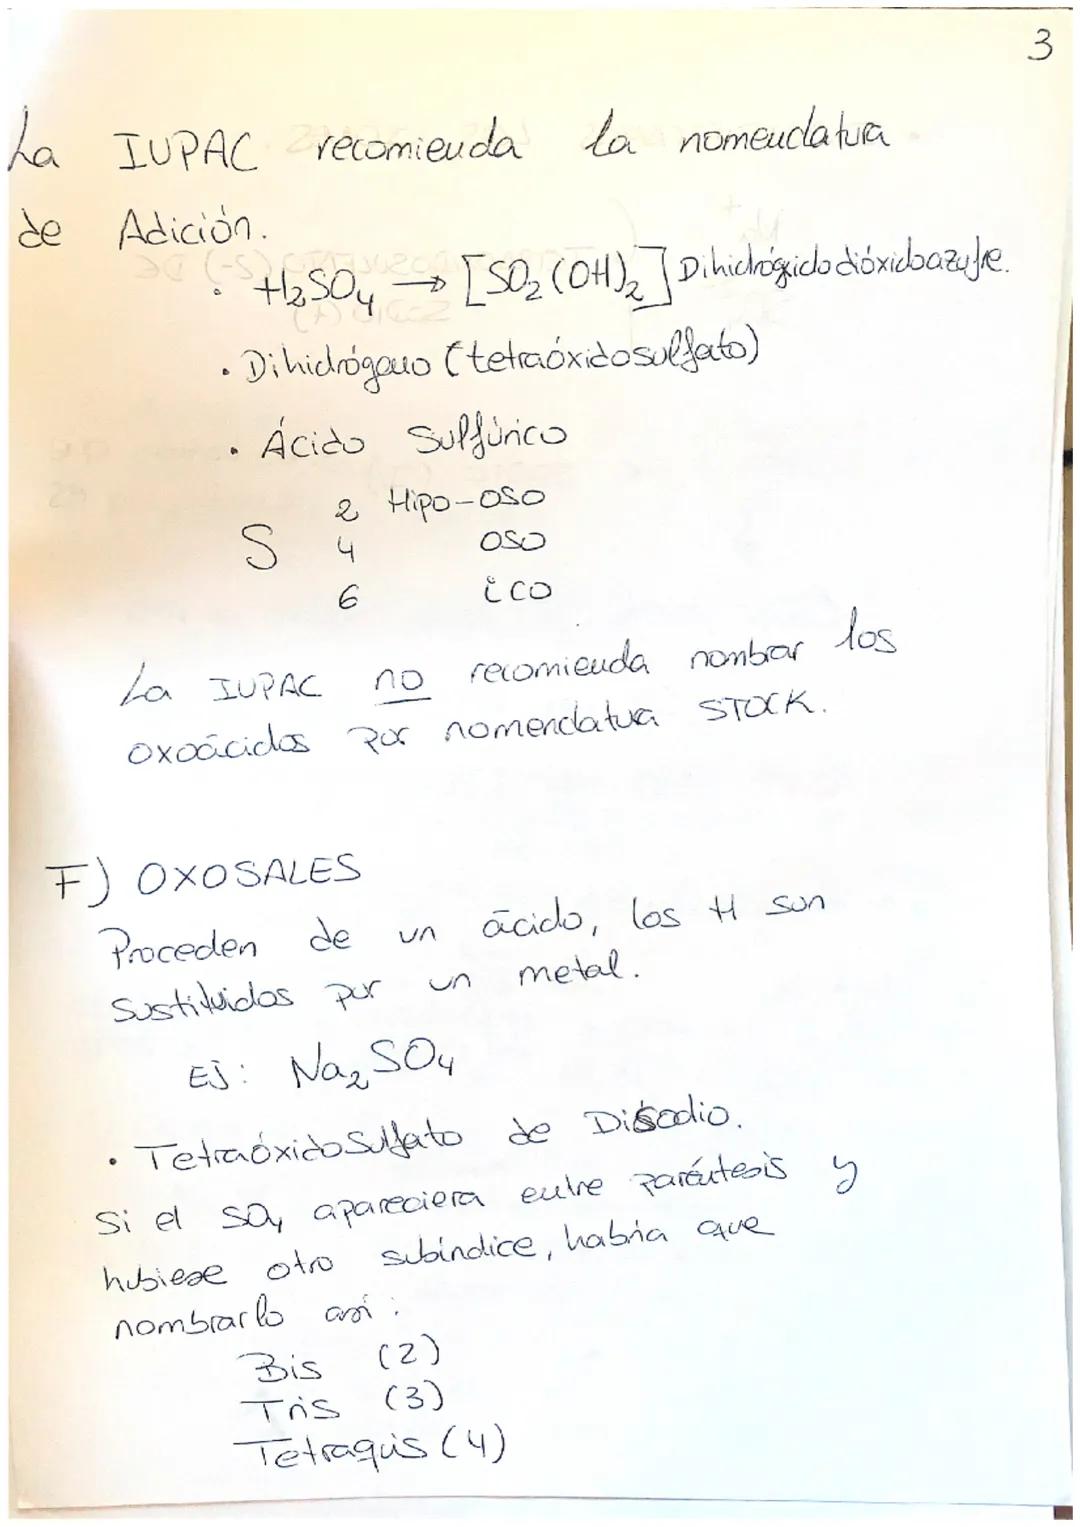 3
La IUPAC recomienda la nomenclatura
de Adición.
· H₂SO₄ → [SO₂(OH)₂] Dihidróxido dióxidoazufre.
· Dihidrógeno (tetraóxidosulfato)
· Ácido Sulfúrico
2 Hipo-oso
S 4 oso
6 ico
La IUPAC no recomienda nombrar los
oxoácidos por nomenclatura STOCK.
F) OXOSALES
Proceden de un ácido, los H son
sustituidos por un metal.
Ej: Na₂SO₄
· TetraóxidoSulfato de Disodio.
Si el SO₄ apareciera entre paréntesis y
hubiese otro subíndice, habría que
nombrarlo así:
Bis (2)
Tris (3)
Tetraquis (4)